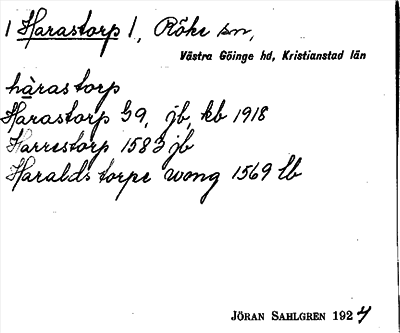 1 Harastorp 1, Röke sn,
Västra Göinge hd, Kristianstad län
hàrastorp
Harastorp G9, jb, kb 1918
Harrestorp 1583 jb
Haralds torpe wong 1569 lb
JÖRAN SAHLGREN 1924